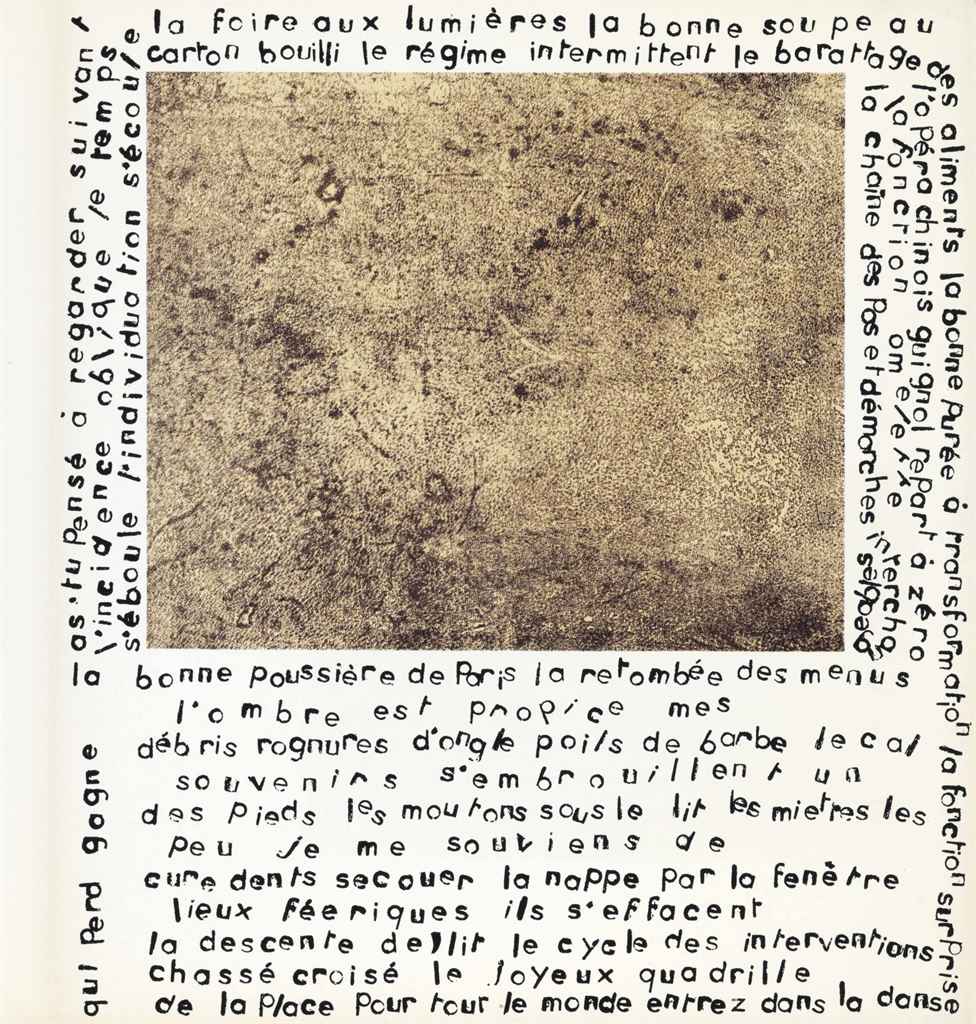 la foire aux lumières la bonne soupe au
carton bouilli le régime intermittent le barattage
des aliments la bonne purée à transformation la fonction surprise
l'opéra chinois guignol repart à zéro
la fonction omelette intercho
la chaîne des pas et démarches
as-tu pensé à regarder suivant
l'incidence oblique le temps
s'éboule l'individuation s'écoule
la bonne poussière de Paris la retombée des menus
l'ombre est propice mes
débris rognures d'ongle poils de barbe le cal
souvenirs s'embrouillent un
des pieds les moutons sous le lit les miettes les
peu je me souviens de
cure dents secouer la nappe par la fenêtre
lieux féeriques ils s'effacent
la descente de llit le cycle des interventions
chassé croisé le joyeux quadrille
de la place pour tour le monde entrez dans la danse
qui perd gagne